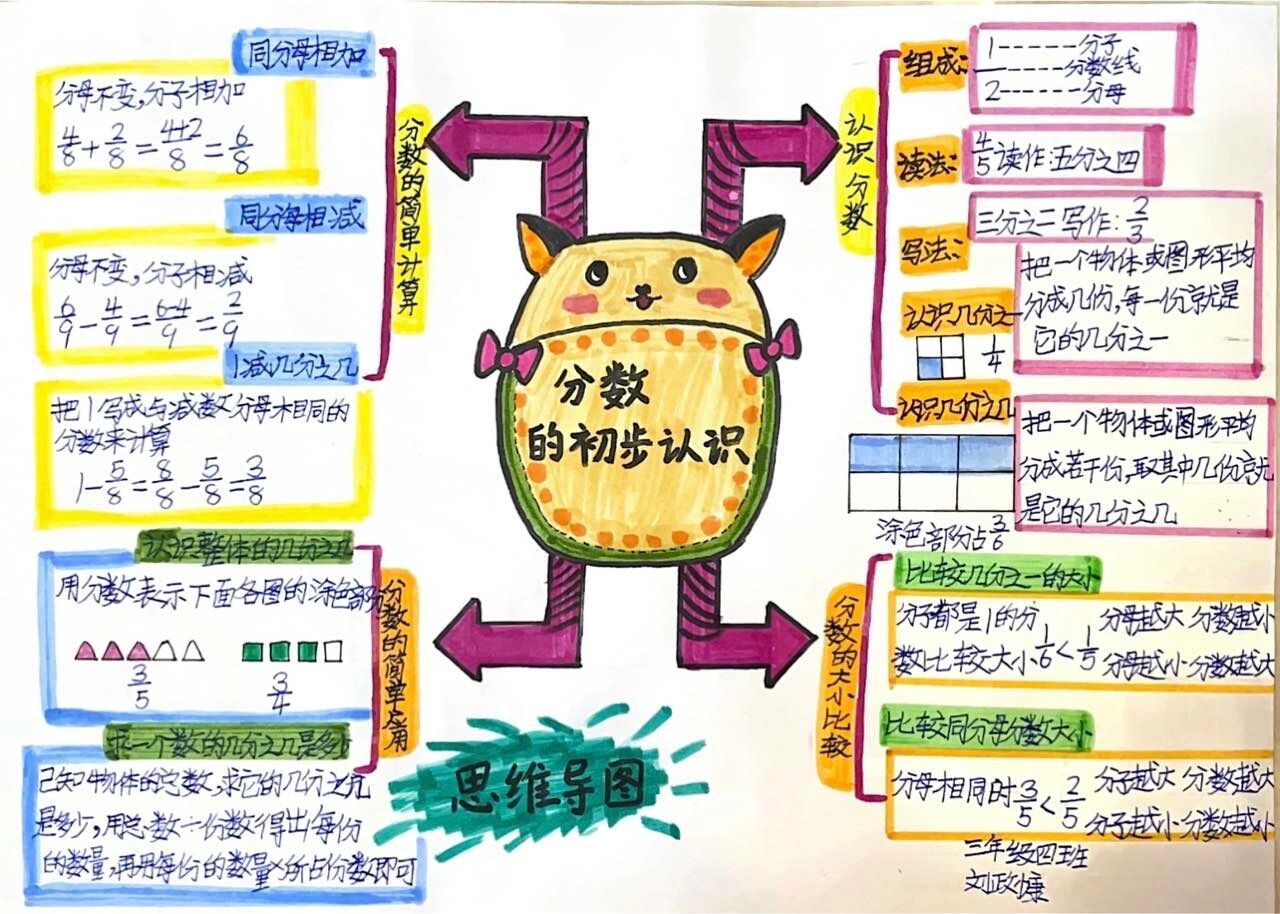 分数
的初步认识
思维导图
认识分数
组成:
1------分子
------分数线
2------分母
读法:
4/5读作:五分之四
写法:
三分之二写作:2/3
认识几分之一
1/4
把一个物体或图形平均
分成几份,每一份就是
它的几分之一
认识几分之几
涂色部分占3/6
把一个物体或图形平均
分成若干份,取其中几份就
是它的几分之几
分数的大小比较
比较几分之一的大小
分子都是1的分
数比较大小1/6<1/5
分母越大 分数越小
分母越小 分数越大
比较同分母分数大小
分母相同时3/5<2/5
分子越大 分数越大
分子越小 分数越小
三年级四班
分数的简单计算
同分母相加
分母不变,分子相加
4/8+2/8=4+2/8=6/8
同分母相减
分母不变,分子相减
6/9-4/9=6-4/9=2/9
1减几分之几
把1写成与减数分母相同的
分数来计算
1-5/8=8/8-5/8=3/8
分数的简单应用
认识整体的几分之几
用分数表示下面各图的涂色部分
3/5
3/4
求一个数的几分之几是多少
已知物体的总数,求它的几分之几
是多少,用总数÷份数得出每份
的数量,再用每份的数量×所占份数即可